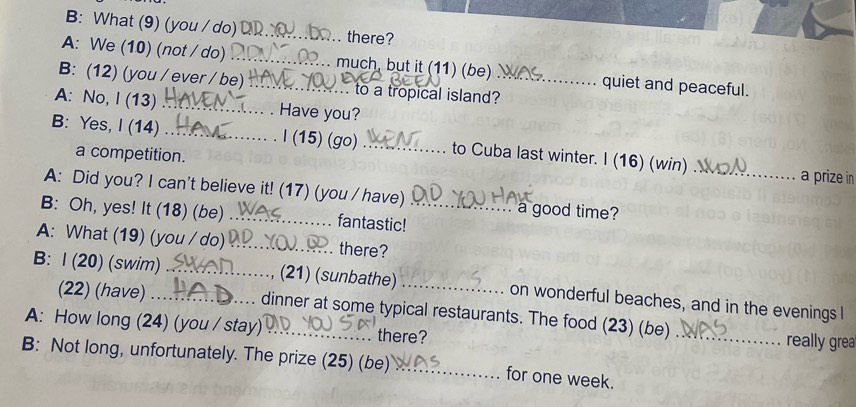 B: What (9) (you / do) DID YOU DO there?
A: We (10) (not / do) DIDN'T DO much, but it (11) (be) WAS quiet and peaceful.
B: (12) (you / ever / be) HAVE YOU EVER BEEN to a tropical island?
A: No, I (13) HAVEN'T. Have you?
B: Yes, I (14) HAVE. I (15) (go) WENT to Cuba last winter. I (16) (win) WON a prize in
a competition.
A: Did you? I can't believe it! (17) (you / have) DID YOU HAVE a good time?
B: Oh, yes! It (18) (be) WAS fantastic!
A: What (19) (you / do) DID YOU DO there?
B: I (20) (swim) SWAM, (21) (sunbathe) on wonderful beaches, and in the evenings I
(22) (have) HAD dinner at some typical restaurants. The food (23) (be) WAS really grea
A: How long (24) (you / stay) DID YOU there?
B: Not long, unfortunately. The prize (25) (be) WAS for one week.